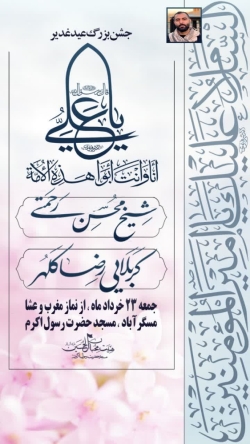 جشن بزرگ عید غدیر
یا علی
انا وانت ابوا هذه الامة
شیخ محسن رحمتی
کربلایی رضا کلهر
جمعه ۲۳ خرداد ماه ، از نماز مغرب و عشا
مسگر آباد ، مسجد حضرت رسول اکرم
السلام علیک یا امیرالمؤمنین